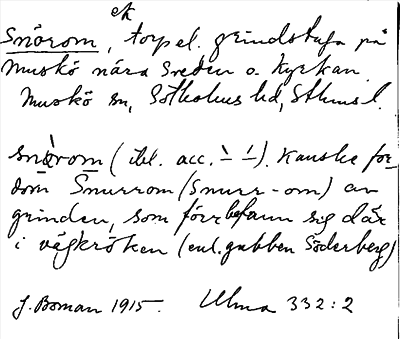 ek
Snörom, torp el. grindstuga på
Muskö nära Sreden o. Kyrkan.
Muskö sn, Sotholms hd, Sthmsl.
snörom (ibl. acc. ` ´). Kanske for-
dom Snurrom (Snurr-om) av
grinden, som förr befann sig där
i vägkröken (enl. gubben Söderberg)
J. Boman 1915. Ulma 332:2